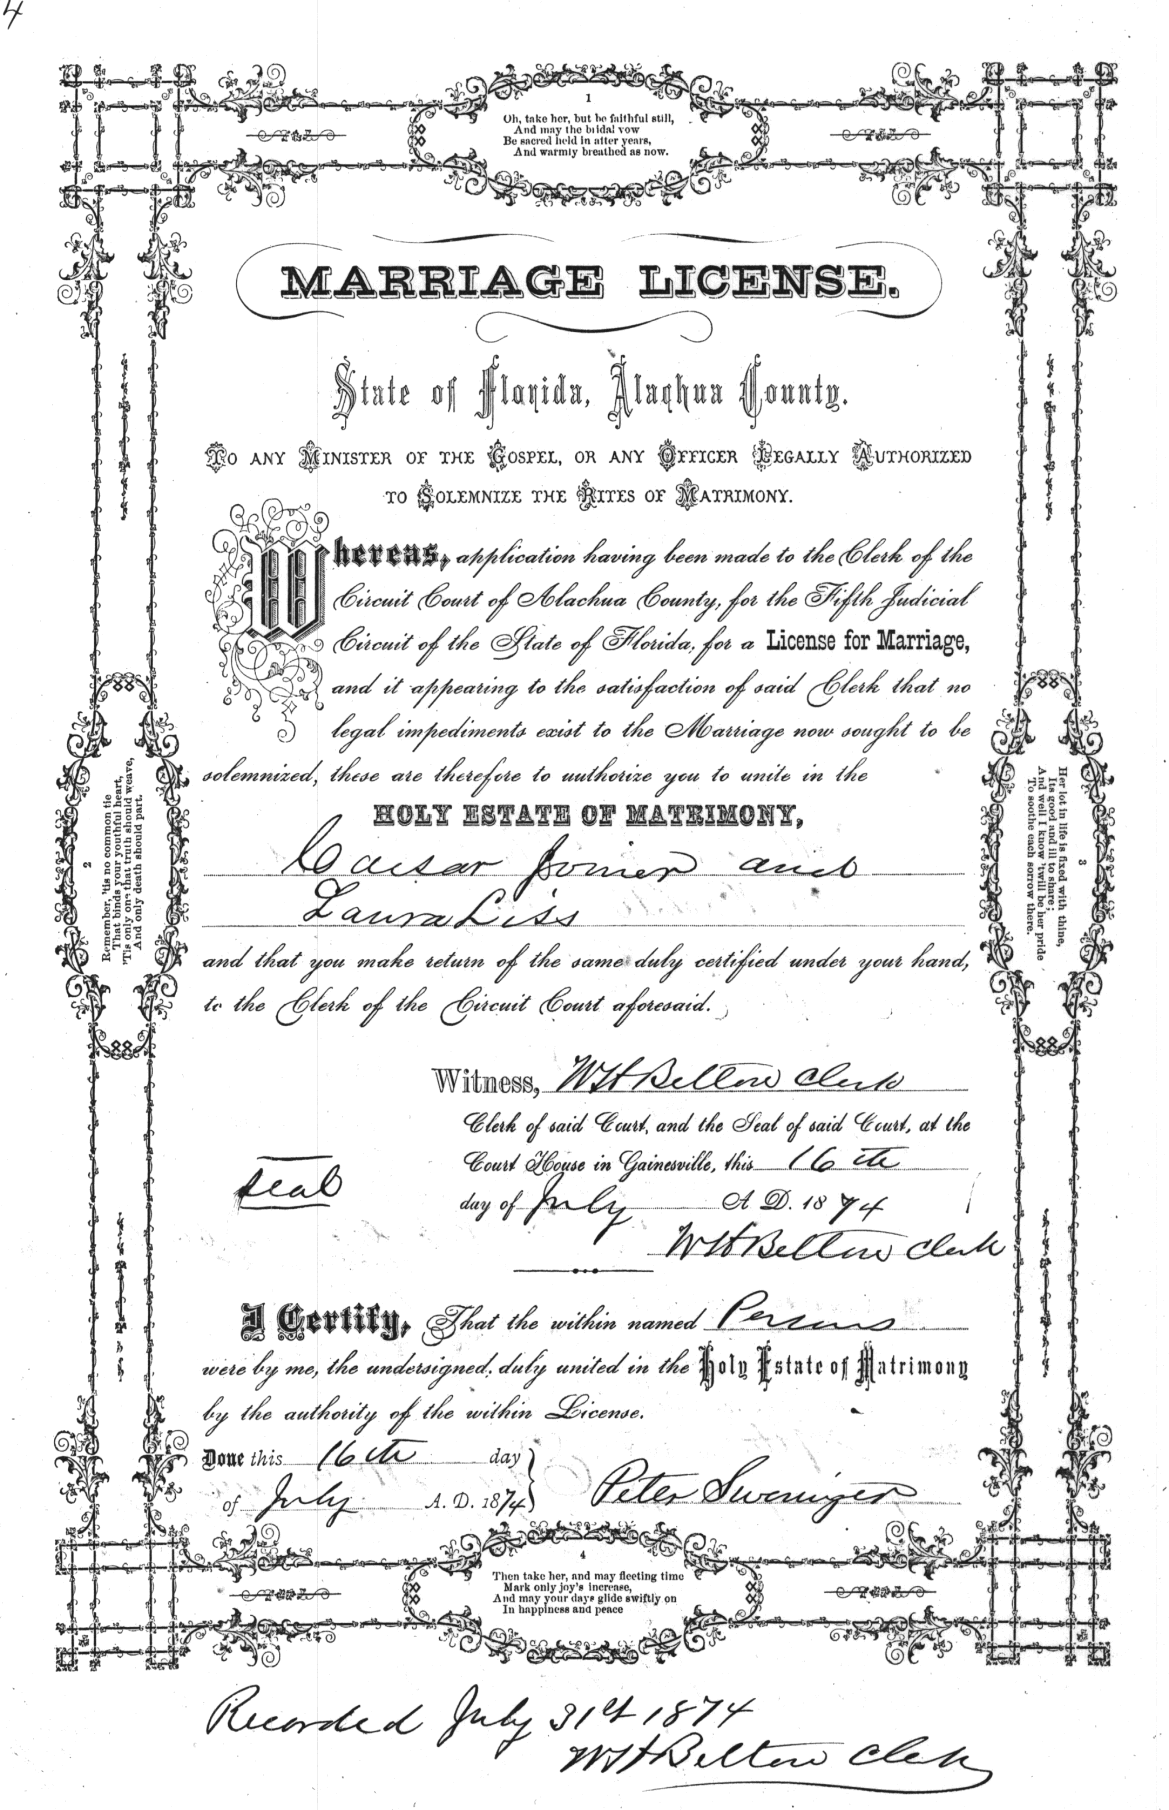 4
1
Oh, take her, but be faithful still,
And may the bridal vow
Be sacred held in after years,
And warmly breathed as now.
MARRIAGE LICENSE.
State of Florida, Alachua County.
TO ANY MINISTER OF THE GOSPEL, OR ANY OFFICER LEGALLY AUTHORIZED
TO SOLEMNIZE THE RITES OF MATRIMONY.
Whereas, application having been made to the Clerk of the
Circuit Court of Alachua County, for the Fifth Judicial
Circuit of the State of Florida, for a License for Marriage,
and it appearing to the satisfaction of said Clerk that no
legal impediments exist to the Marriage now sought to be
solemnized, these are therefore to authorize you to unite in the
HOLY ESTATE OF MATRIMONY,
Caesar Joiner and
Laura Liss
and that you make return of the same duly certified under your hand,
to the Clerk of the Circuit Court aforesaid.
2
Remember, 'tis no common tie
That binds your youthful heart,
'Tis only one that truth should weave,
And only death should part.
3
Her lot in life is fixed with thine,
Its good and ill to share;
And well I know 'twill be her pride
To soothe each sorrow there.
Witness, W H Belton Clerk
Clerk of said Court, and the Seal of said Court, at the
Court House in Gainesville, this 16th
seal
day of July A. D. 1874
W H Belton Clerk
I Certify, That the within named Persons
were by me, the undersigned, duly united in the Holy Estate of Matrimony
by the authority of the within License.
Done this 16th day
of July A. D. 1874 Peter Sweniger
4
Then take her, and may fleeting time
Mark only joy's increase,
And may your days glide swiftly on
In happiness and peace
Recorded July 31st 1874
W H Belton Clerk